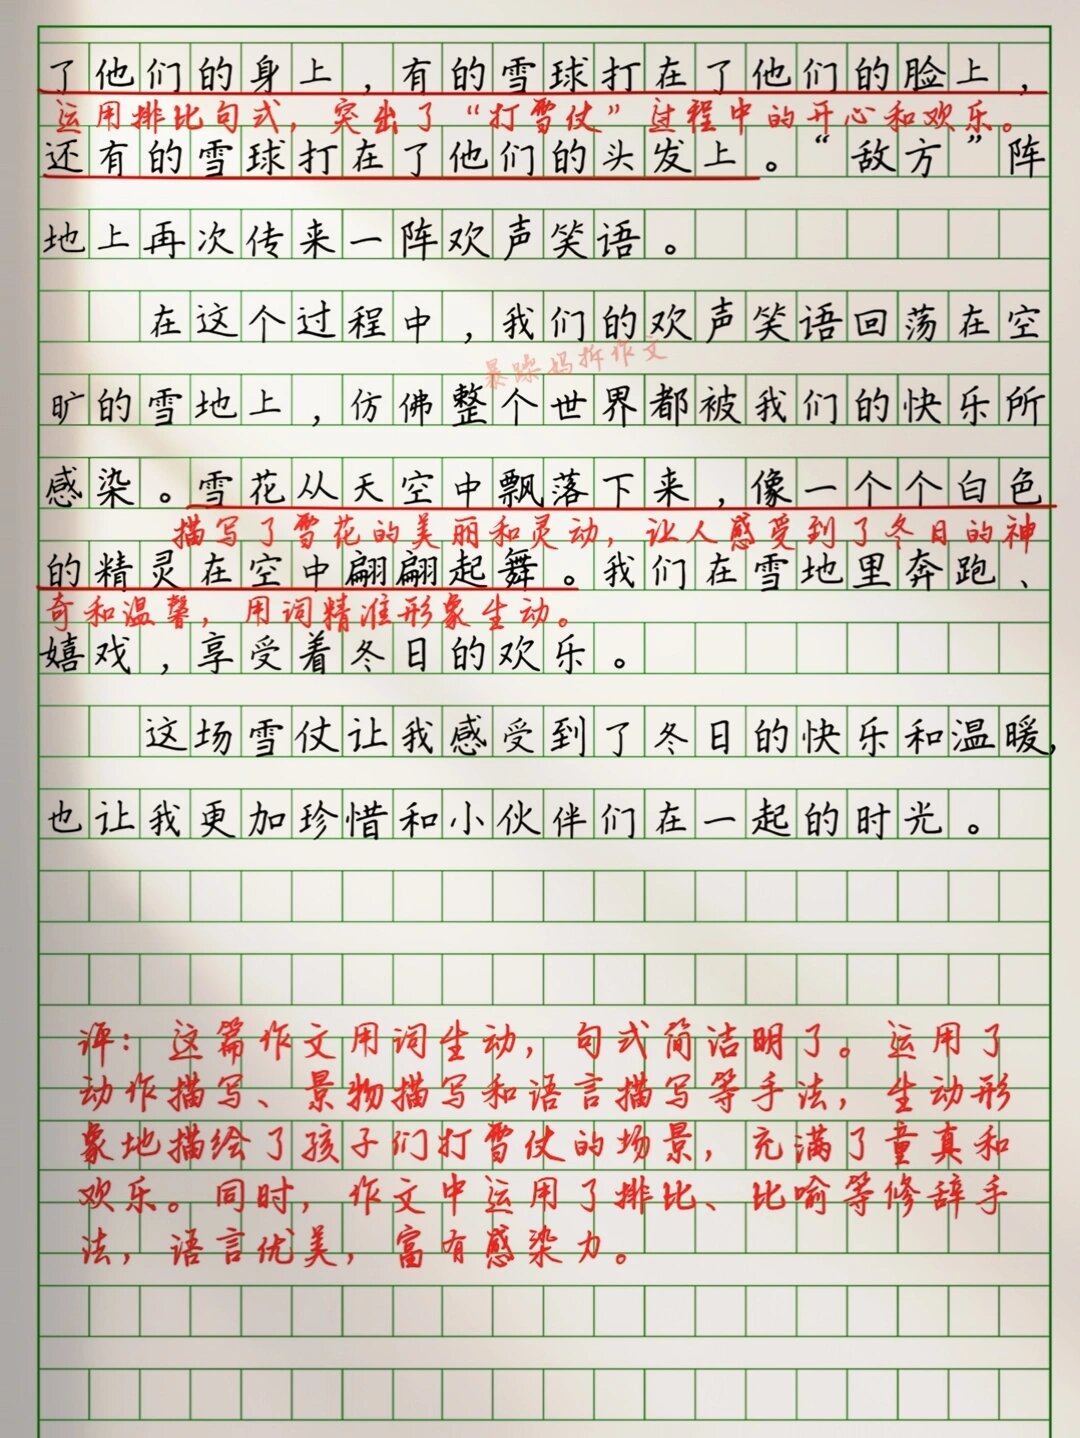 了他们的身上，有的雪球打在了他们的脸上，
运用排比句式，突出了“打雪仗”过程中的开心和欢乐。
还有的雪球打在了他们的头发上。“敌方”阵
地上再次传来一阵欢声笑语。
在这个过程中，我们的欢声笑语回荡在空
暴躁妈拆作文
旷的雪地上，仿佛整个世界都被我们的快乐所
感染。雪花从天空中飘落下来，像一个个白色
描写了雪花的美丽和灵动，让人感受到了冬日的神
的精灵在空中翩翩起舞。我们在雪地里奔跑、
奇和温馨，用词精准形象生动。
嬉戏，享受着冬日的欢乐。
这场雪仗让我感受到了冬日的快乐和温暖，
也让我更加珍惜和小伙伴们在一起的时光。
评：这篇作文用词生动，句式简洁明了。运用了
动作描写、景物描写和语言描写等手法，生动形
象地描绘了孩子们打雪仗的场景，充满了童真和
欢乐。同时，作文中运用了排比、比喻等修辞手
法，语言优美，富有感染力。